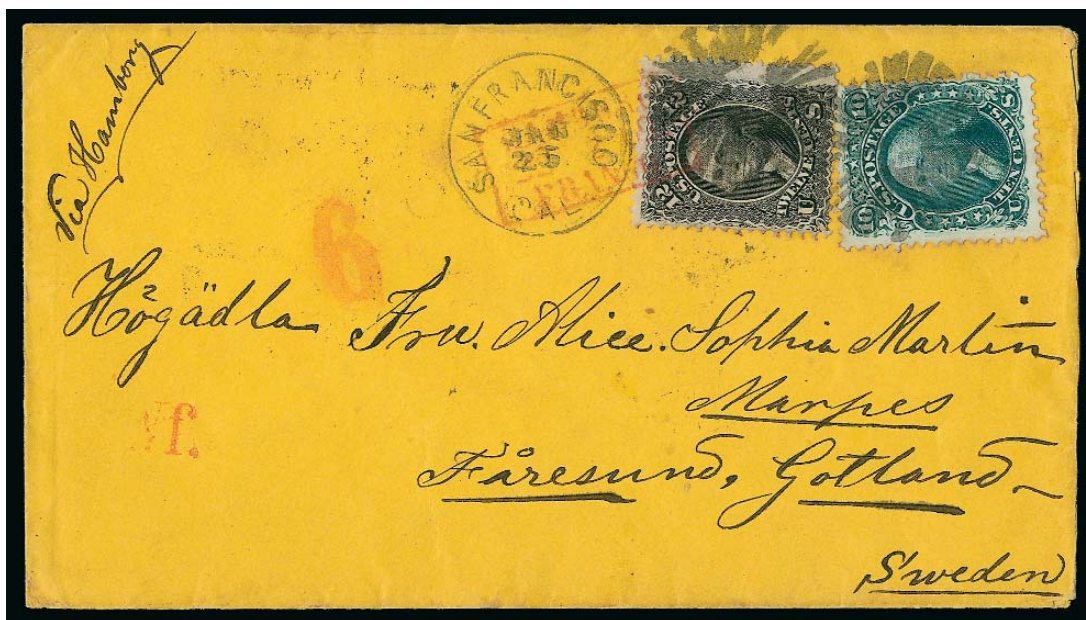 Via Hamborg
SAN FRANCISCO
23
CAL
12 U.S. POSTAGE 12
TWELVE CENTS
10 U.S. POSTAGE 10
TEN CENTS
6
Högädla Fru. Alice. Sophia Martin
Marpes
f.
Fåresund, Gotland
Sweden